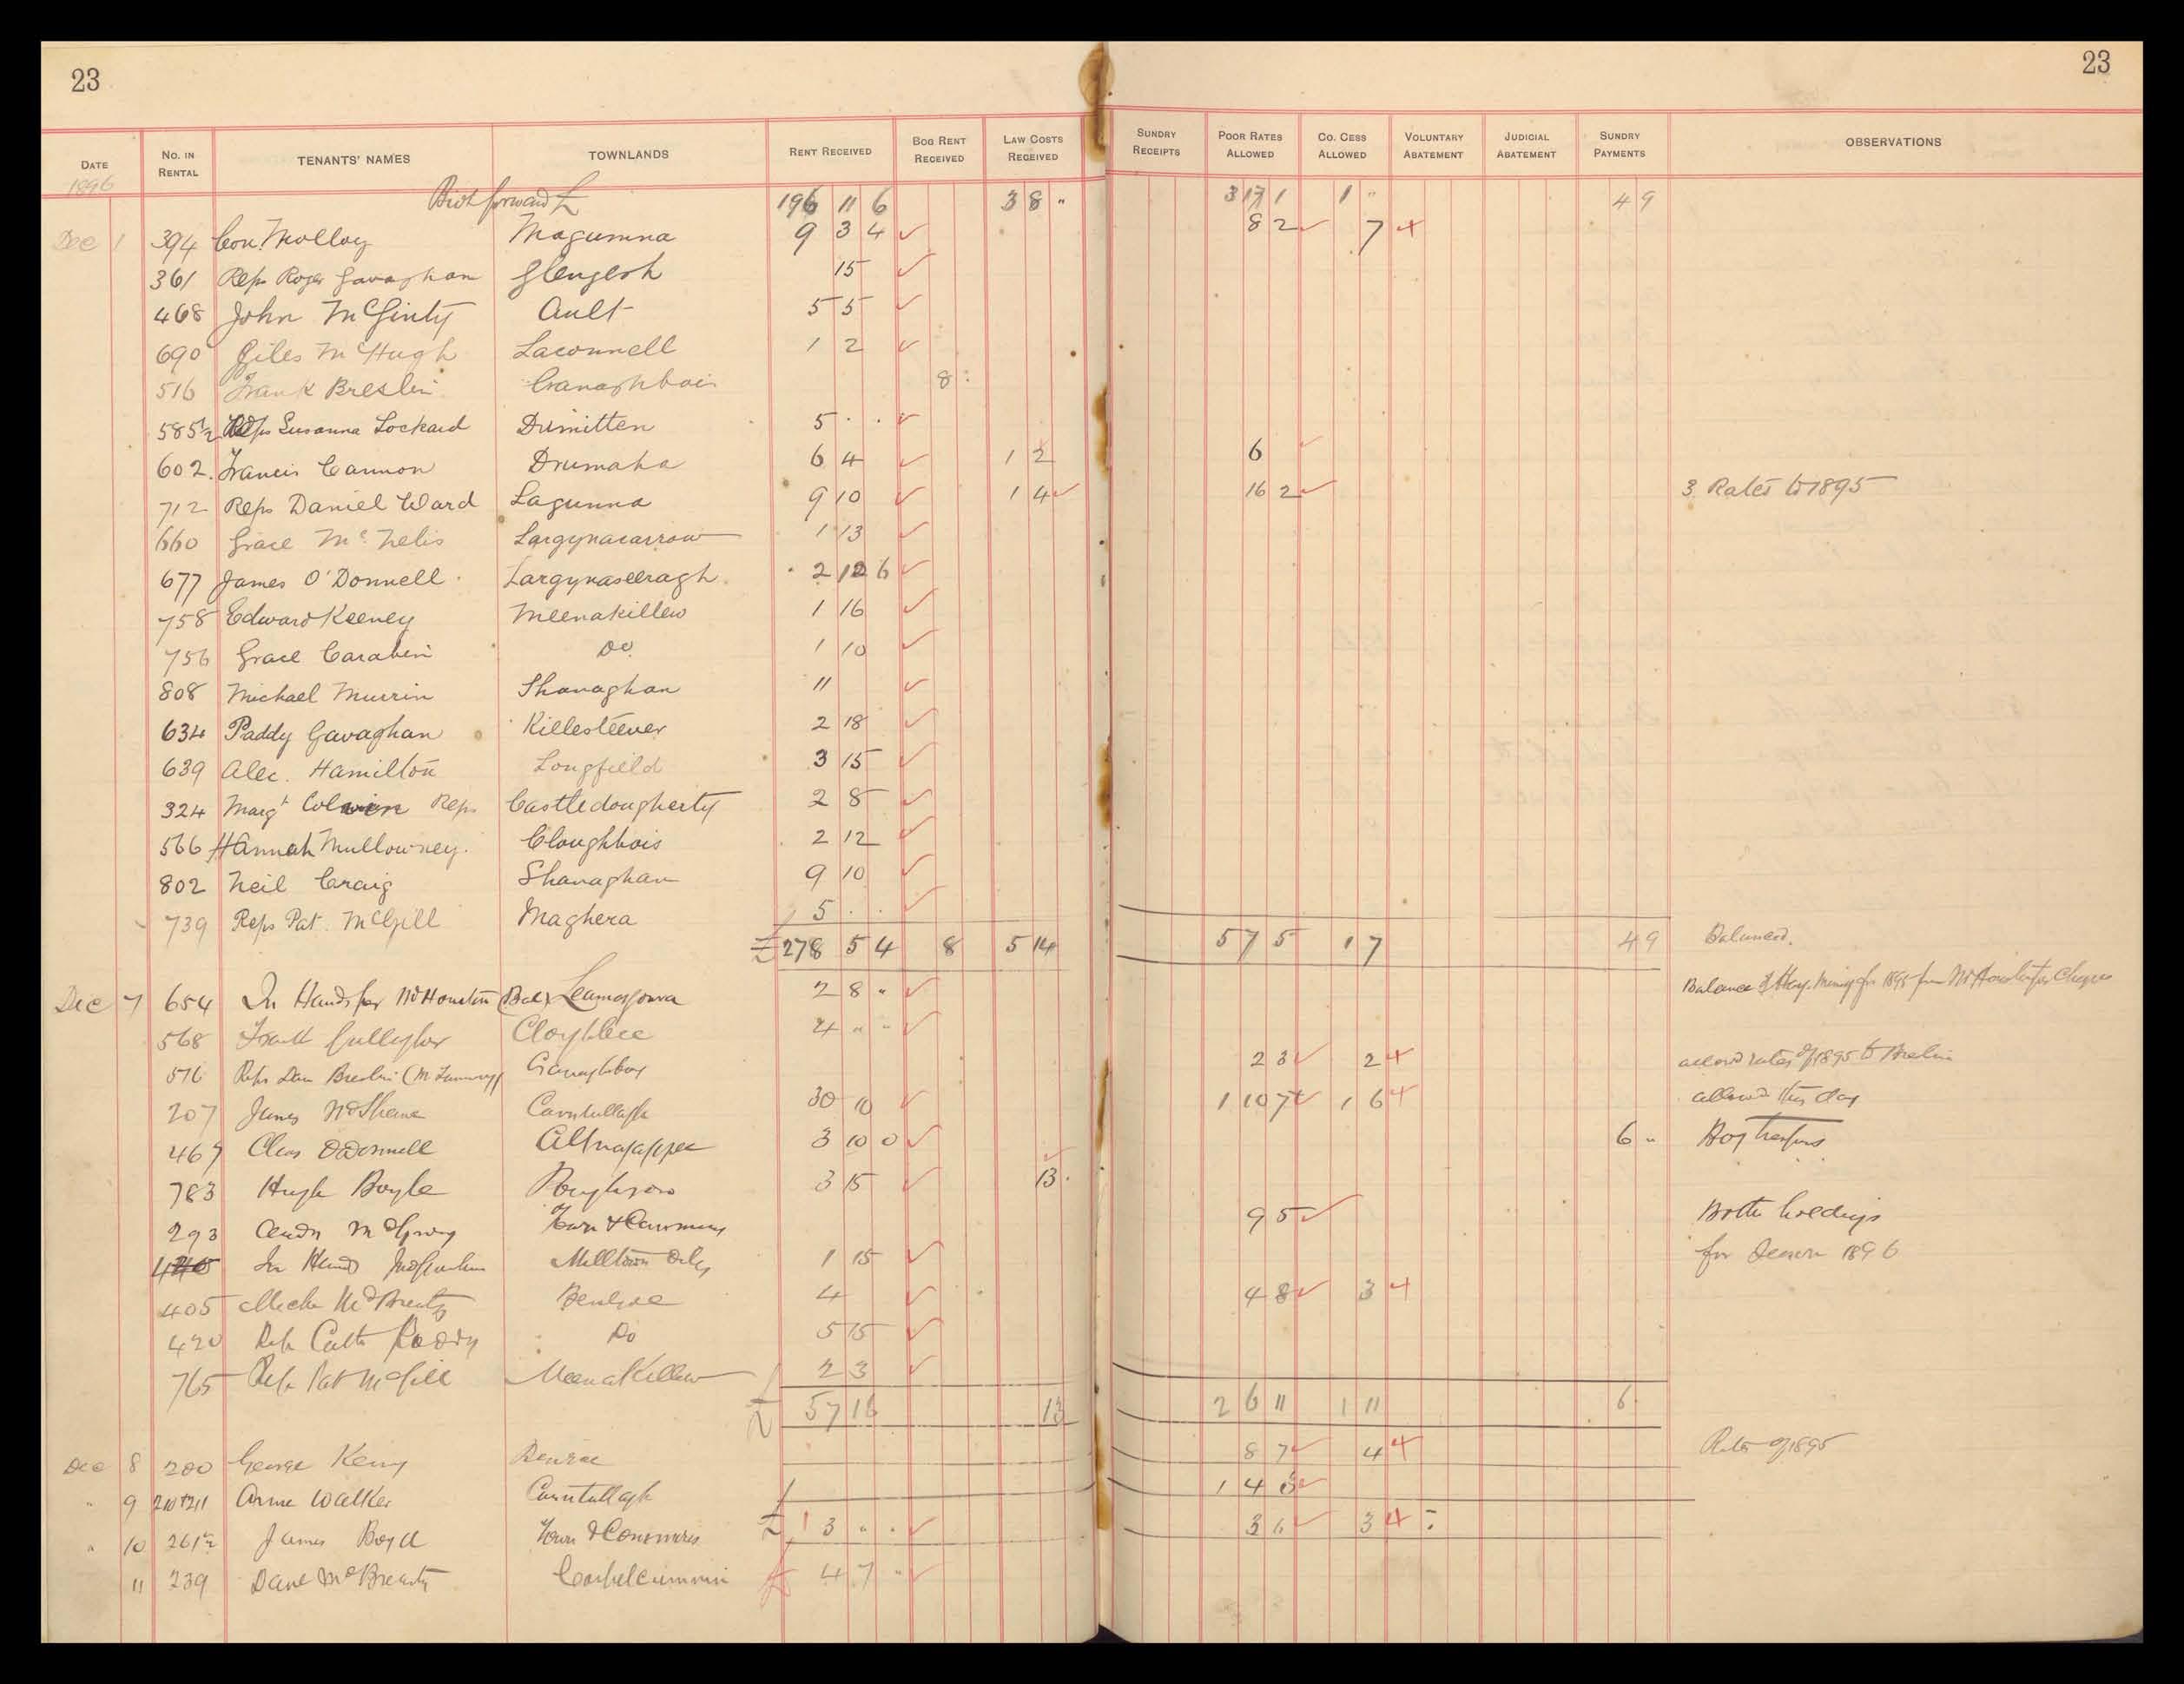 23
23
DATE No. IN RENTAL TENANTS' NAMES TOWNLANDS RENT RECEIVED BOG RENT RECEIVED LAW COSTS RECEIVED SUNDRY RECEIPTS POOR RATES ALLOWED CO. CESS ALLOWED VOLUNTARY ABATEMENT JUDICIAL ABATEMENT SUNDRY PAYMENTS OBSERVATIONS
1896
Brot forward £ 196 11 6 3 8 " 3 17 1 1 " 4 9
Dec 1 394 Con. Molloy Magumna 9 3 4 8 2 7
361 Reps Roger Gavaghan Glengesh 15
468 John McGinty Ault 5 5
690 Giles McHugh Laconnell 1 2
516 Frank Breslin Cranaghbois 8
585½ Reps Susanna Lockard Drimitten 5 . .
602. Francis Cannon Drumaha 6 4 1 2 6
712 Reps Daniel Ward Lagunna 9 10 1 4 16 2 3 Rates to 1895
660 Grace McNelis Largynacarrow 1 13
677 James O'Donnell Largynaseeragh 2 12 6
758 Edward Keeney Meenakillew 1 16
756 Grace Carabin Do. 1 10
808 Michael Murrin Shanaghan 11
634 Paddy Gavaghan Killesteever 2 18
639 Alec. Hamilton Longfield 3 15
324 Margt Reps Castledougherty 2 8
566 Hannah Mullowney. Cloughbois 2 12
802 Neil Craig Shanaghan 9 10
739 Reps Pat. McGill Maghera 5 . .
£ 278 5 4 8 5 14 5 7 5 1 7 4 9 Balanced.
Dec 7 654 In Hands per McHouston (Bal) 2 8 " Balance of for 1895 from McHouston per Cheque
568 Frank Gallagher 4 " "
516 Reps Dan Breslin Cranaghboy 2 3 2 allowed rates of 1895 to Breslin
207 James McShane Carntullagh 30 10 1 10 7 1 6 allowed this day
467 Chas O'Donnell Altnagapple 3 10 0 6 "
783 Hugh Boyle 3 15 13 .
293 Andw Town & 9 5 Both holdings
In Hands Milltown only 1 15 for Season 1896
405 Michl McBrearty Benroe 4 4 8 3
420 Reps Cath Do 5 15
765 Reps Pat McGill Meenakillew 2 3
£ 57 16 13 2 6 11 1 11 6
Dec 8 200 George Kenny Benroe 8 7 4 Rates of 1895
" 9 210+211 Anne Walker Carntullagh 1 4 3
" 10 261½ James Boyd Town & £ 13 " . 3 11 3
11 239 Danl McBrearty Corkelcummin £ 4 7 "